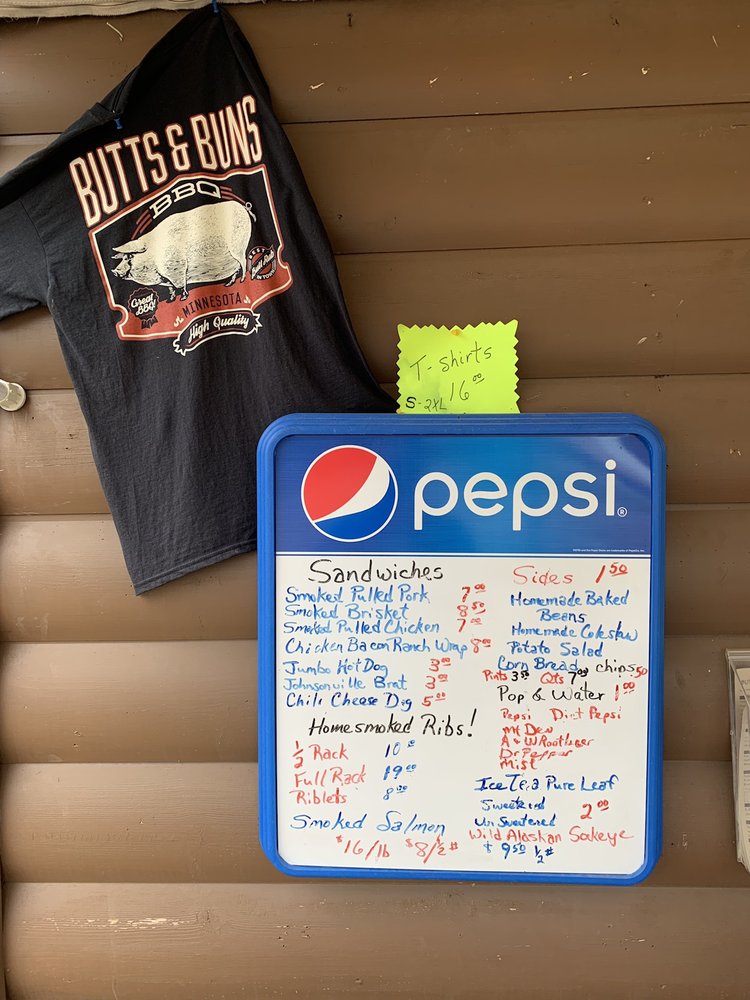 BUTTS & BUNS
BBQ
Great BBQ!
BEST Butt Rubs IN TOWN
MINNESOTA
High Quality
T-shirts
S-2XL 16.00
pepsi®
Sandwiches
Smoked Pulled Pork 7.00
Smoked Brisket 8.50
Smoked Pulled Chicken 7.00
Chicken Bacon Ranch Wrap 8.00
Jumbo Hot Dog 3.00
Johnsonville Brat 3.00
Chili Cheese Dog 5.00
Homesmoked Ribs!
1/2 Rack 10.00
Full Rack 19.00
Riblets 8.00
Smoked Salmon
$16/lb $8/½ #
Sides 1.50
Homemade Baked
Beans
Homemade Coleslaw
Potato Salad
Corn Bread chips .50
Pints 3.50 Qts 7.00
Pop & Water 1.00
Pepsi Diet Pepsi
Mt Dew
A & W Rootbeer
Dr Pepper
Mist
Ice Tea Pure Leaf
Sweetened
UnSweetened 2.00
Wild Alaskan Sokeye
$9.50 ½ #